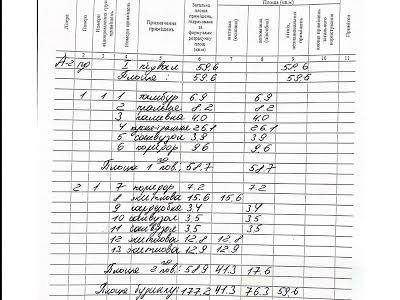 Площа (кв.м)
Літери
Поверхи
Номери приміщень
Призначення приміщень
Загальна площа приміщень, підрахована за формулами розрахунку площ (кв.м)
житлова (основна)
допоміжна (підсобна)
Примітки
2 3 4 5 6 7 8 9 10 11
А-2 пд I підвал 59.6 59.6
Площа: 59.6 59.6
1 1 1 тамбур 6.9 6.9
2 паливна 8.2 8.2
3 паливна 4.0 4.0
4 кухня-їдальня 26.1 26.1
5 санвузол 3.9 3.9
6 коридор 9.6 9.6
Площа 1 го пов.: 58.7 58.7
2 1 7 коридор 7.2 7.2
8 житлова 15.6 15.6
9 гардеробна 3.4 3.4
10 санвузол 3.5 3.5
11 санвузол 3.5 3.5
12 житлова 12.8 12.8
13 житлова 12.9 12.9
Площа 2 го пов: 58.9 41.3 17.6
Площа будинку: 177.2 41.3 76.3 59.6